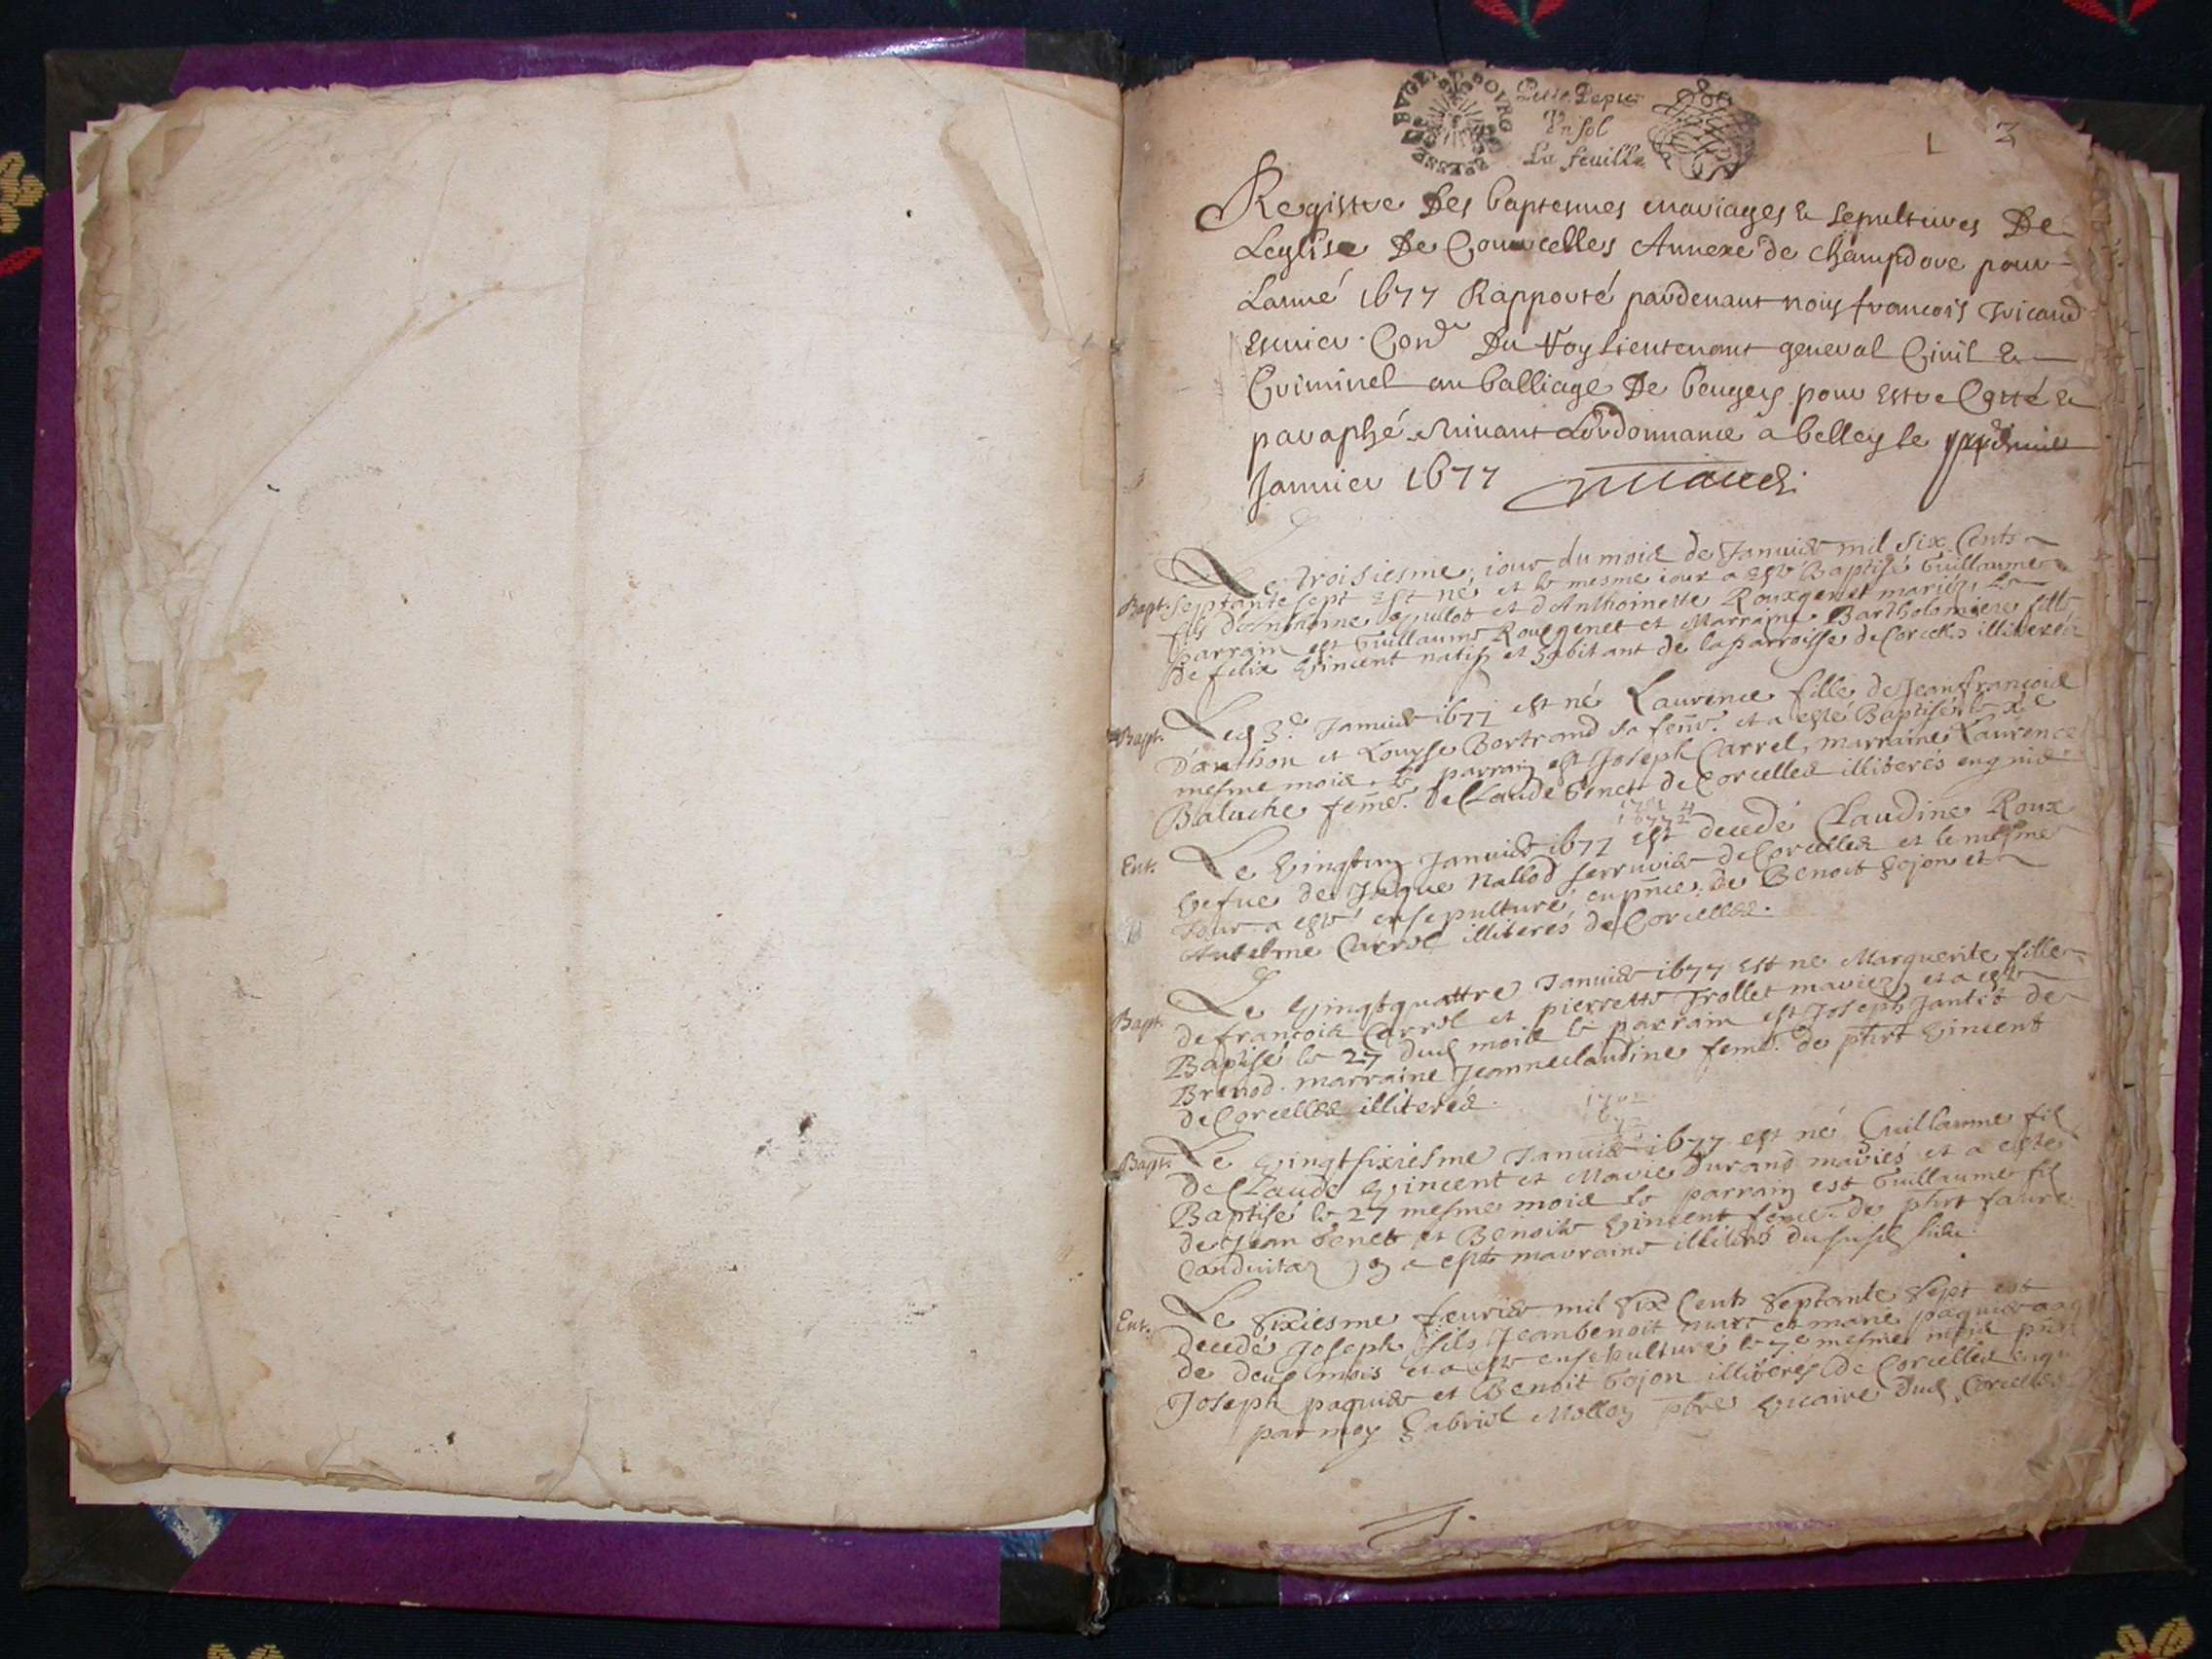 BVGEY
Vn sol
La feuille
1 3
Registre Des baptesmes mariages & sepultures De
Leglise De Courcelles Annexe de champdore pour
Lanné 1677 Rapporté pardeuant nous francois
Escuier Con.er Du Roy Lieutenant general Ciuil &
Criminel au balliage De beugey pour estre Cotté &
paraphé suiuant Lordonnance a belley le
Januier 1677
Le troisiesme iour du mois de Januier mil six Cents
Bapt. septante sept est né et le mesme iour a esté Baptisé Guillaume
fils d'Anthoine et d'Anthoinette Rougenet mariés, le
parrain est Guillaume Rougenet et Marraine Bartholomiere fille
de felix Vincent natifs et habitant de la parroisse de Corcelles illiterés
Bapt. Led 3.e Januier 1677 est né Laurence fille de Jean francois
D'anthon et Louyse Bertrand sa feme. et a esté Baptisée le xe
mesme mois le parrain est Joseph Carrel, marraine Laurence
Baluche feme. de Claude Genet de Corcelles illiterés
Ent. Le Vingtun Januier 1677 est decedé Claudine Roux
Vefue de Jaque Nallod serruier de Corcelles et le mesme
Jour a esté ensepulturé en pnce. de Benoit Gojon et
Antelme Carrel illiterés de Corcelles.
Bapt. Le Vingtquattre Januier 1677 est né Marguerite fille
de francois Carrel et pierrette Trollet mariez, et a esté
Baptisé le 27 dud mois le parrain est Joseph Jantet de
Brenod. marraine Jeanneclaudine feme. de phrt Vincent
de Corcelles illiterés.
Bapt. Le Vingtsixiesme Januier 1677 est né Guillaume fil
de Claude Vincent et Marie Durand mariés et a esté
Baptisé le 27 mesme mois le parrain est Guillaume fil
de Jean Genet et Benoite Vincent feme. de phrt faure
y a esté marraine illiterés du susd lieu.
Ent. Le Sixiesme feurier mil Six Cents Septante Sept est
decedé Joseph fils Jeanbenoit marc et marie paquier
de deux mois et a esté ensepulturé le 7e mesme mois
Joseph paquier et Benoit Gojon illiterés de Corcelles
par moy Gabriel Molloz pbre Vicaire dud Corcelles